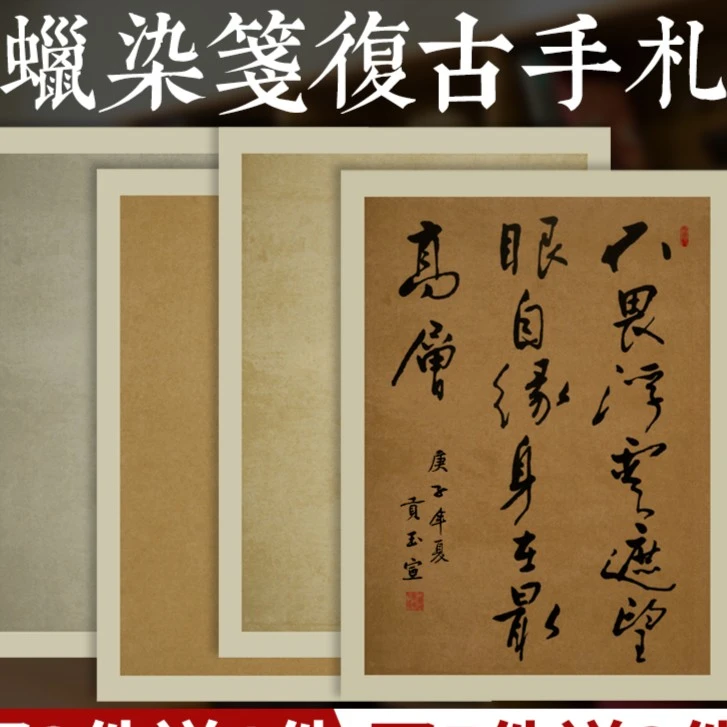 蠟染箋復古手札
不畏浮雲遮望
眼自緣身在最
高層
庚子年夏
貢玉宣